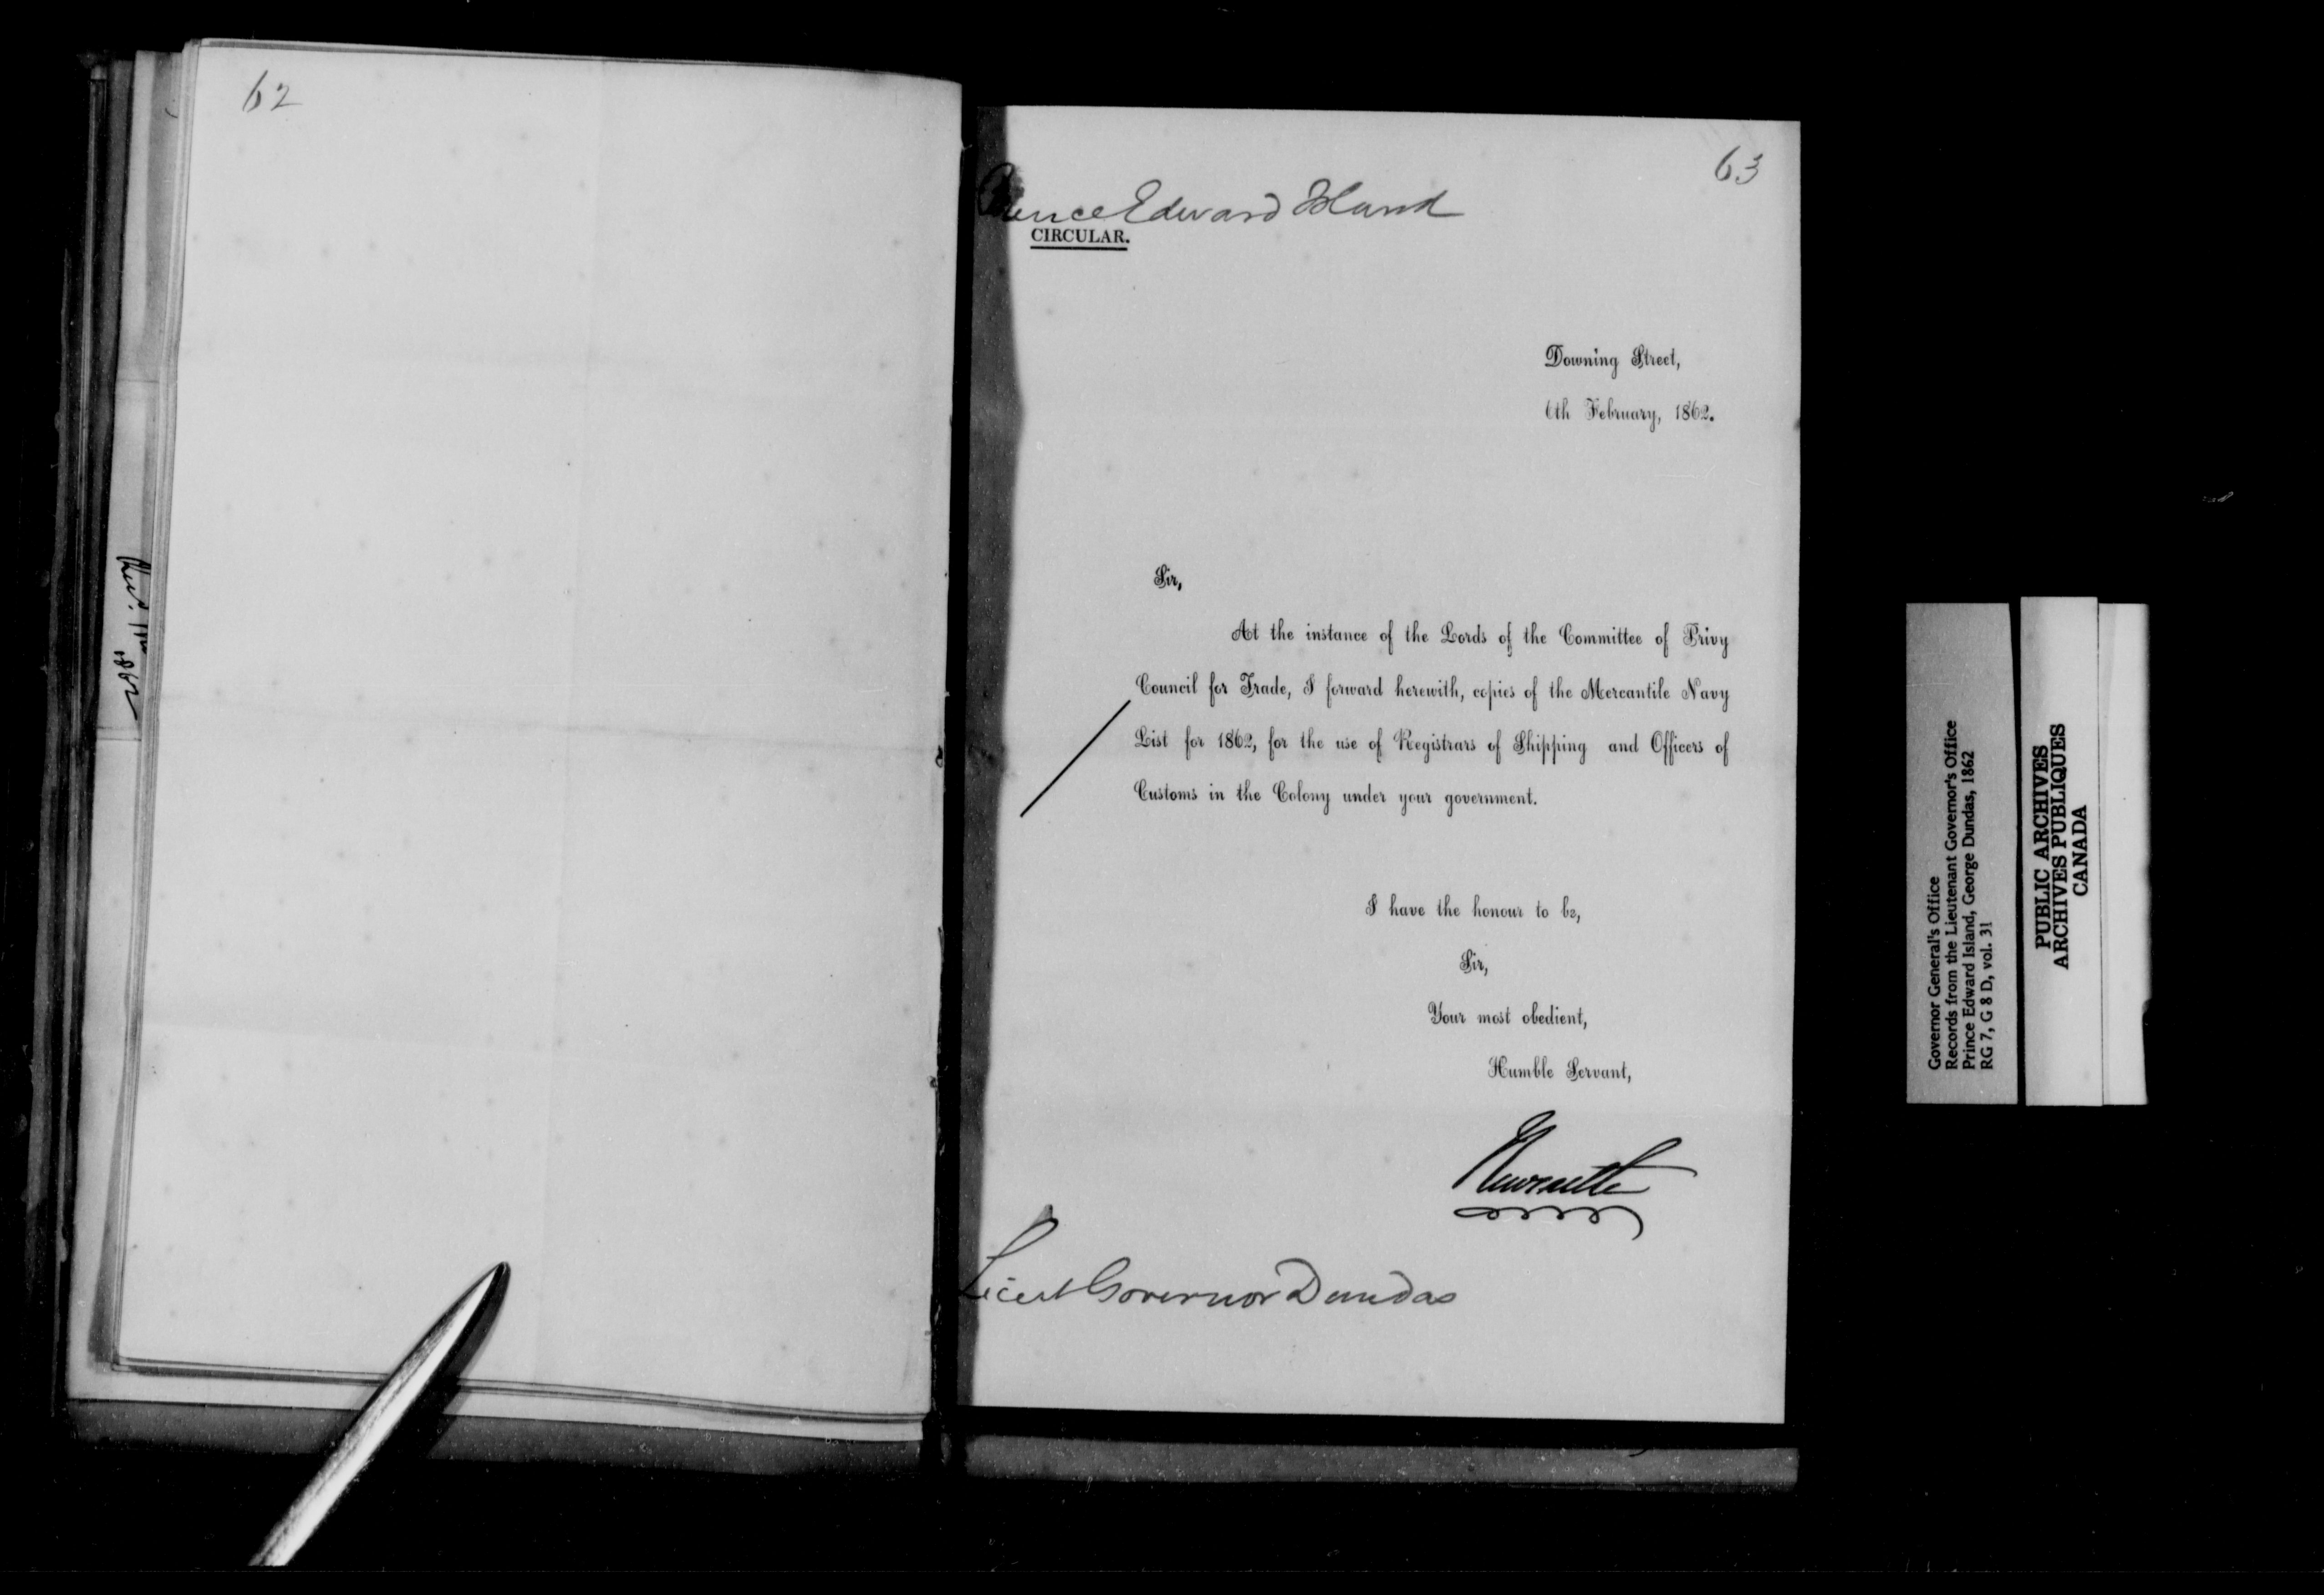 62
63
Prince Edward Island
CIRCULAR.
Downing Street,
6th February, 1862.
Sir,
At the instance of the Lords of the Committee of Privy
Council for Trade, I forward herewith, copies of the Mercantile Navy
List for 1862, for the use of Registrars of Shipping and Officers of
Customs in the Colony under your government.
I have the honour to be,
Sir,
Your most obedient,
Humble Servant,
Newcastle
Lieut Governor Dundas
Governor General's Office
Records from the Lieutenant Governor's Office
Prince Edward Island, George Dundas, 1862
RG 7, G 8 D, vol. 31
PUBLIC ARCHIVES
ARCHIVES PUBLIQUES
CANADA